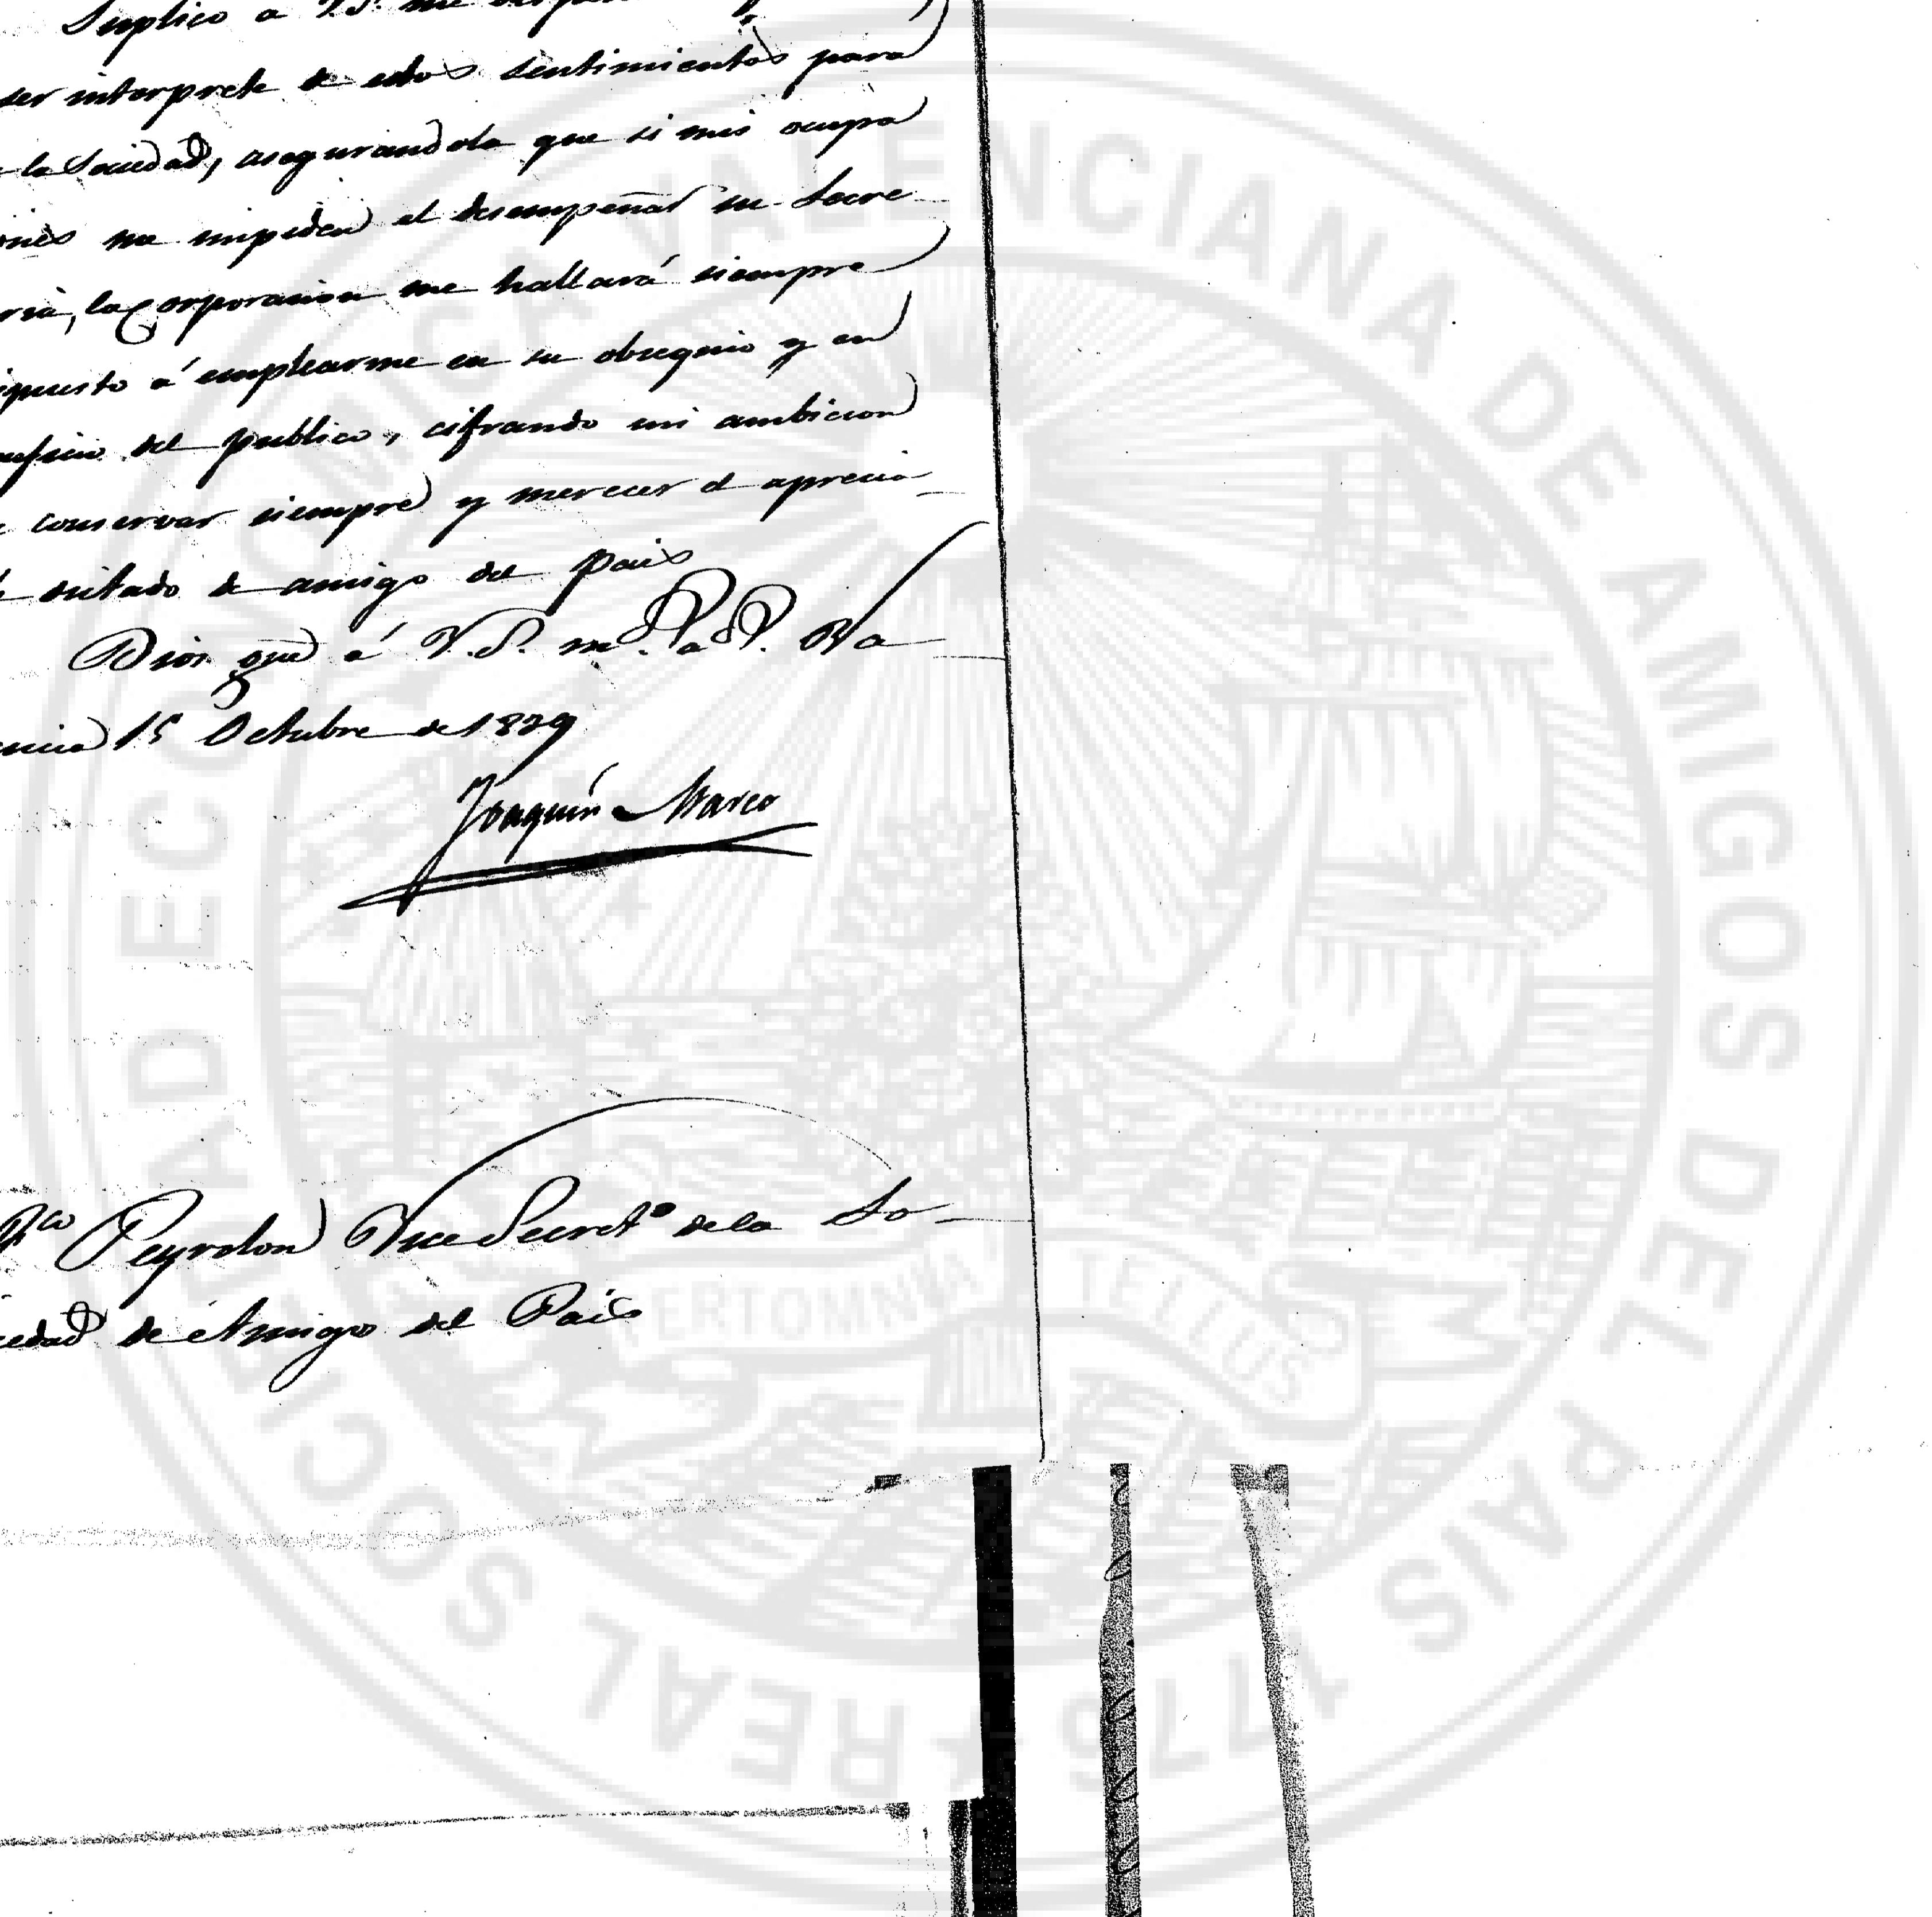 Suplico a V.S. me
ser interprete de estos sentimientos para
la Sociedad, asegurandola que si mis ocupa
ones me impiden el desempeñar su Secre
ria, la Corporacion me hallará siempre
ispuesto á emplearme en su obsequio y en
neficio del publico, cifrando mi ambicion
conservar siempre y merecer el aprecia
dictado de amigo del pais
Dios gue á V.S. m.s a.s Va
encia 15 Octubre de 1839
Joaquín Marco
Fco Peyrolon Vice Secret.o de la So
iedad de Amigo del Pais
REAL SOCIEDAD ECONOMICA VALENCIANA DE AMIGOS DEL PAIS 1776